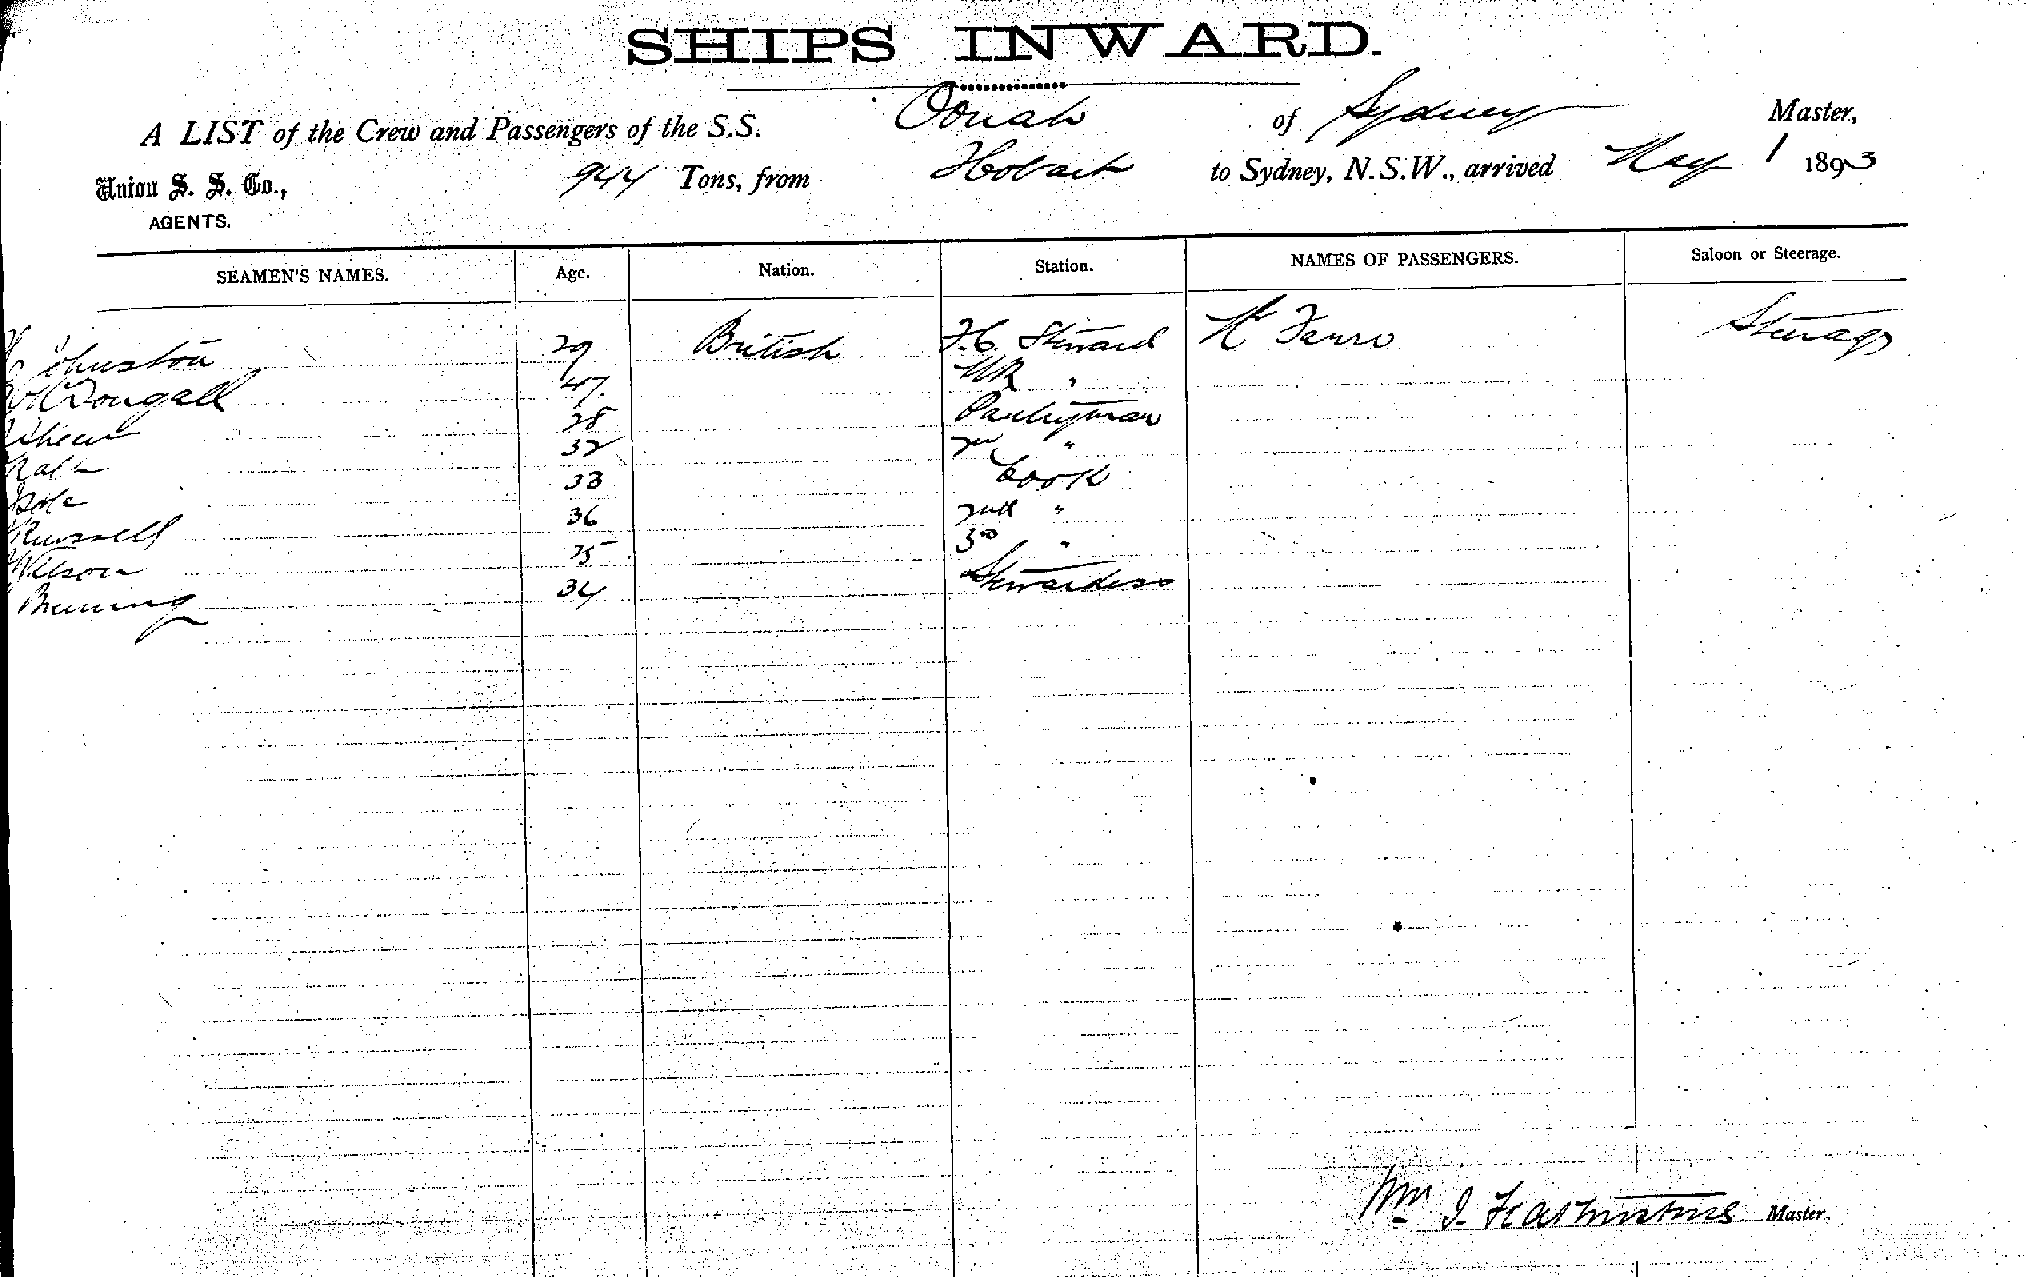 SHIPS INWARD.
A LIST of the Crew and Passengers of the S.S. Oonah of Sydney Master,
Union S. S. Co., 944 Tons, from Hobart to Sydney, N.S.W., arrived May 1 1893
AGENTS.
SEAMEN'S NAMES. Age. Nation. Station. NAMES OF PASSENGERS. Saloon or Steerage.
Johnston 29 British F.C. Steward Steerage
McDougall 47 "
28 Pantryman
32 2nd "
33 Cook
Russell 36 2nd "
Wilson 25 3rd "
34 Stewardess
Wm J. Master.